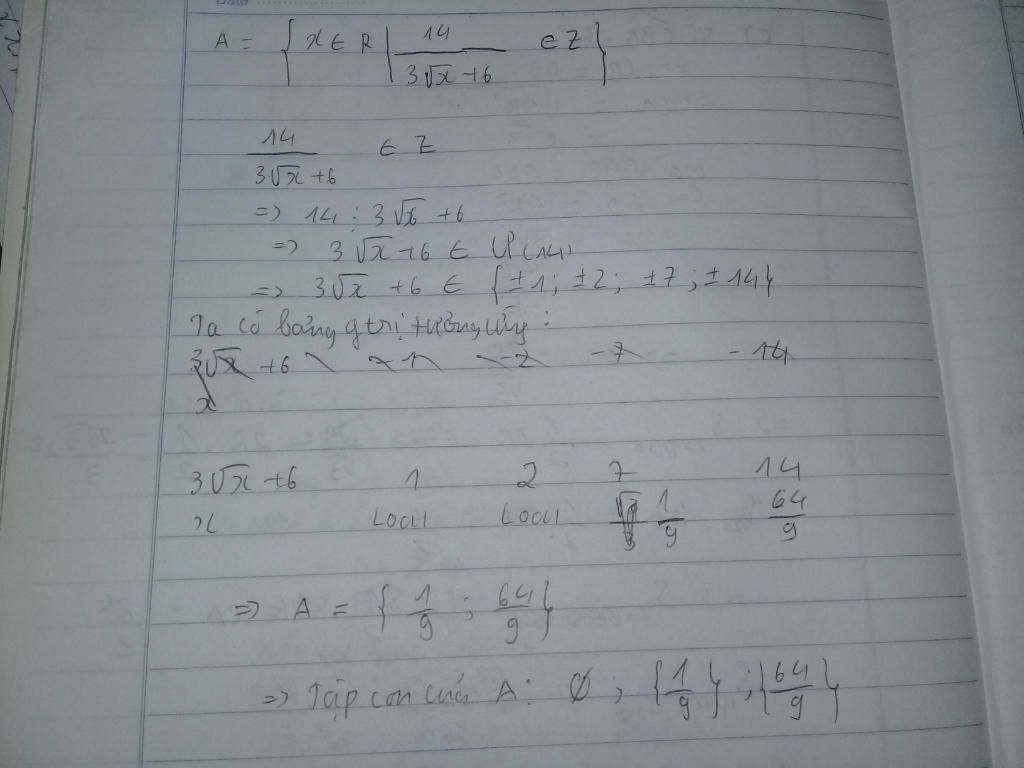 A = { x ∈ R | 14 / (3√x + 6) ∈ Z }
14 / (3√x + 6) ∈ Z
=> 14 ⋮ 3√x + 6
=> 3√x + 6 ∈ Ư(14)
=> 3√x + 6 ∈ {±1; ±2; ±7; ±14}
Ta có bảng gtrị tương ứng:
3√x + 6 -1 -2 -7 -14
x
3√x + 6 1 2 7 14
x Loại Loại 1/9 64/9
=> A = { 1/9 ; 64/9 }
=> Tập con của A: Ø ; {1/9} ; {64/9}